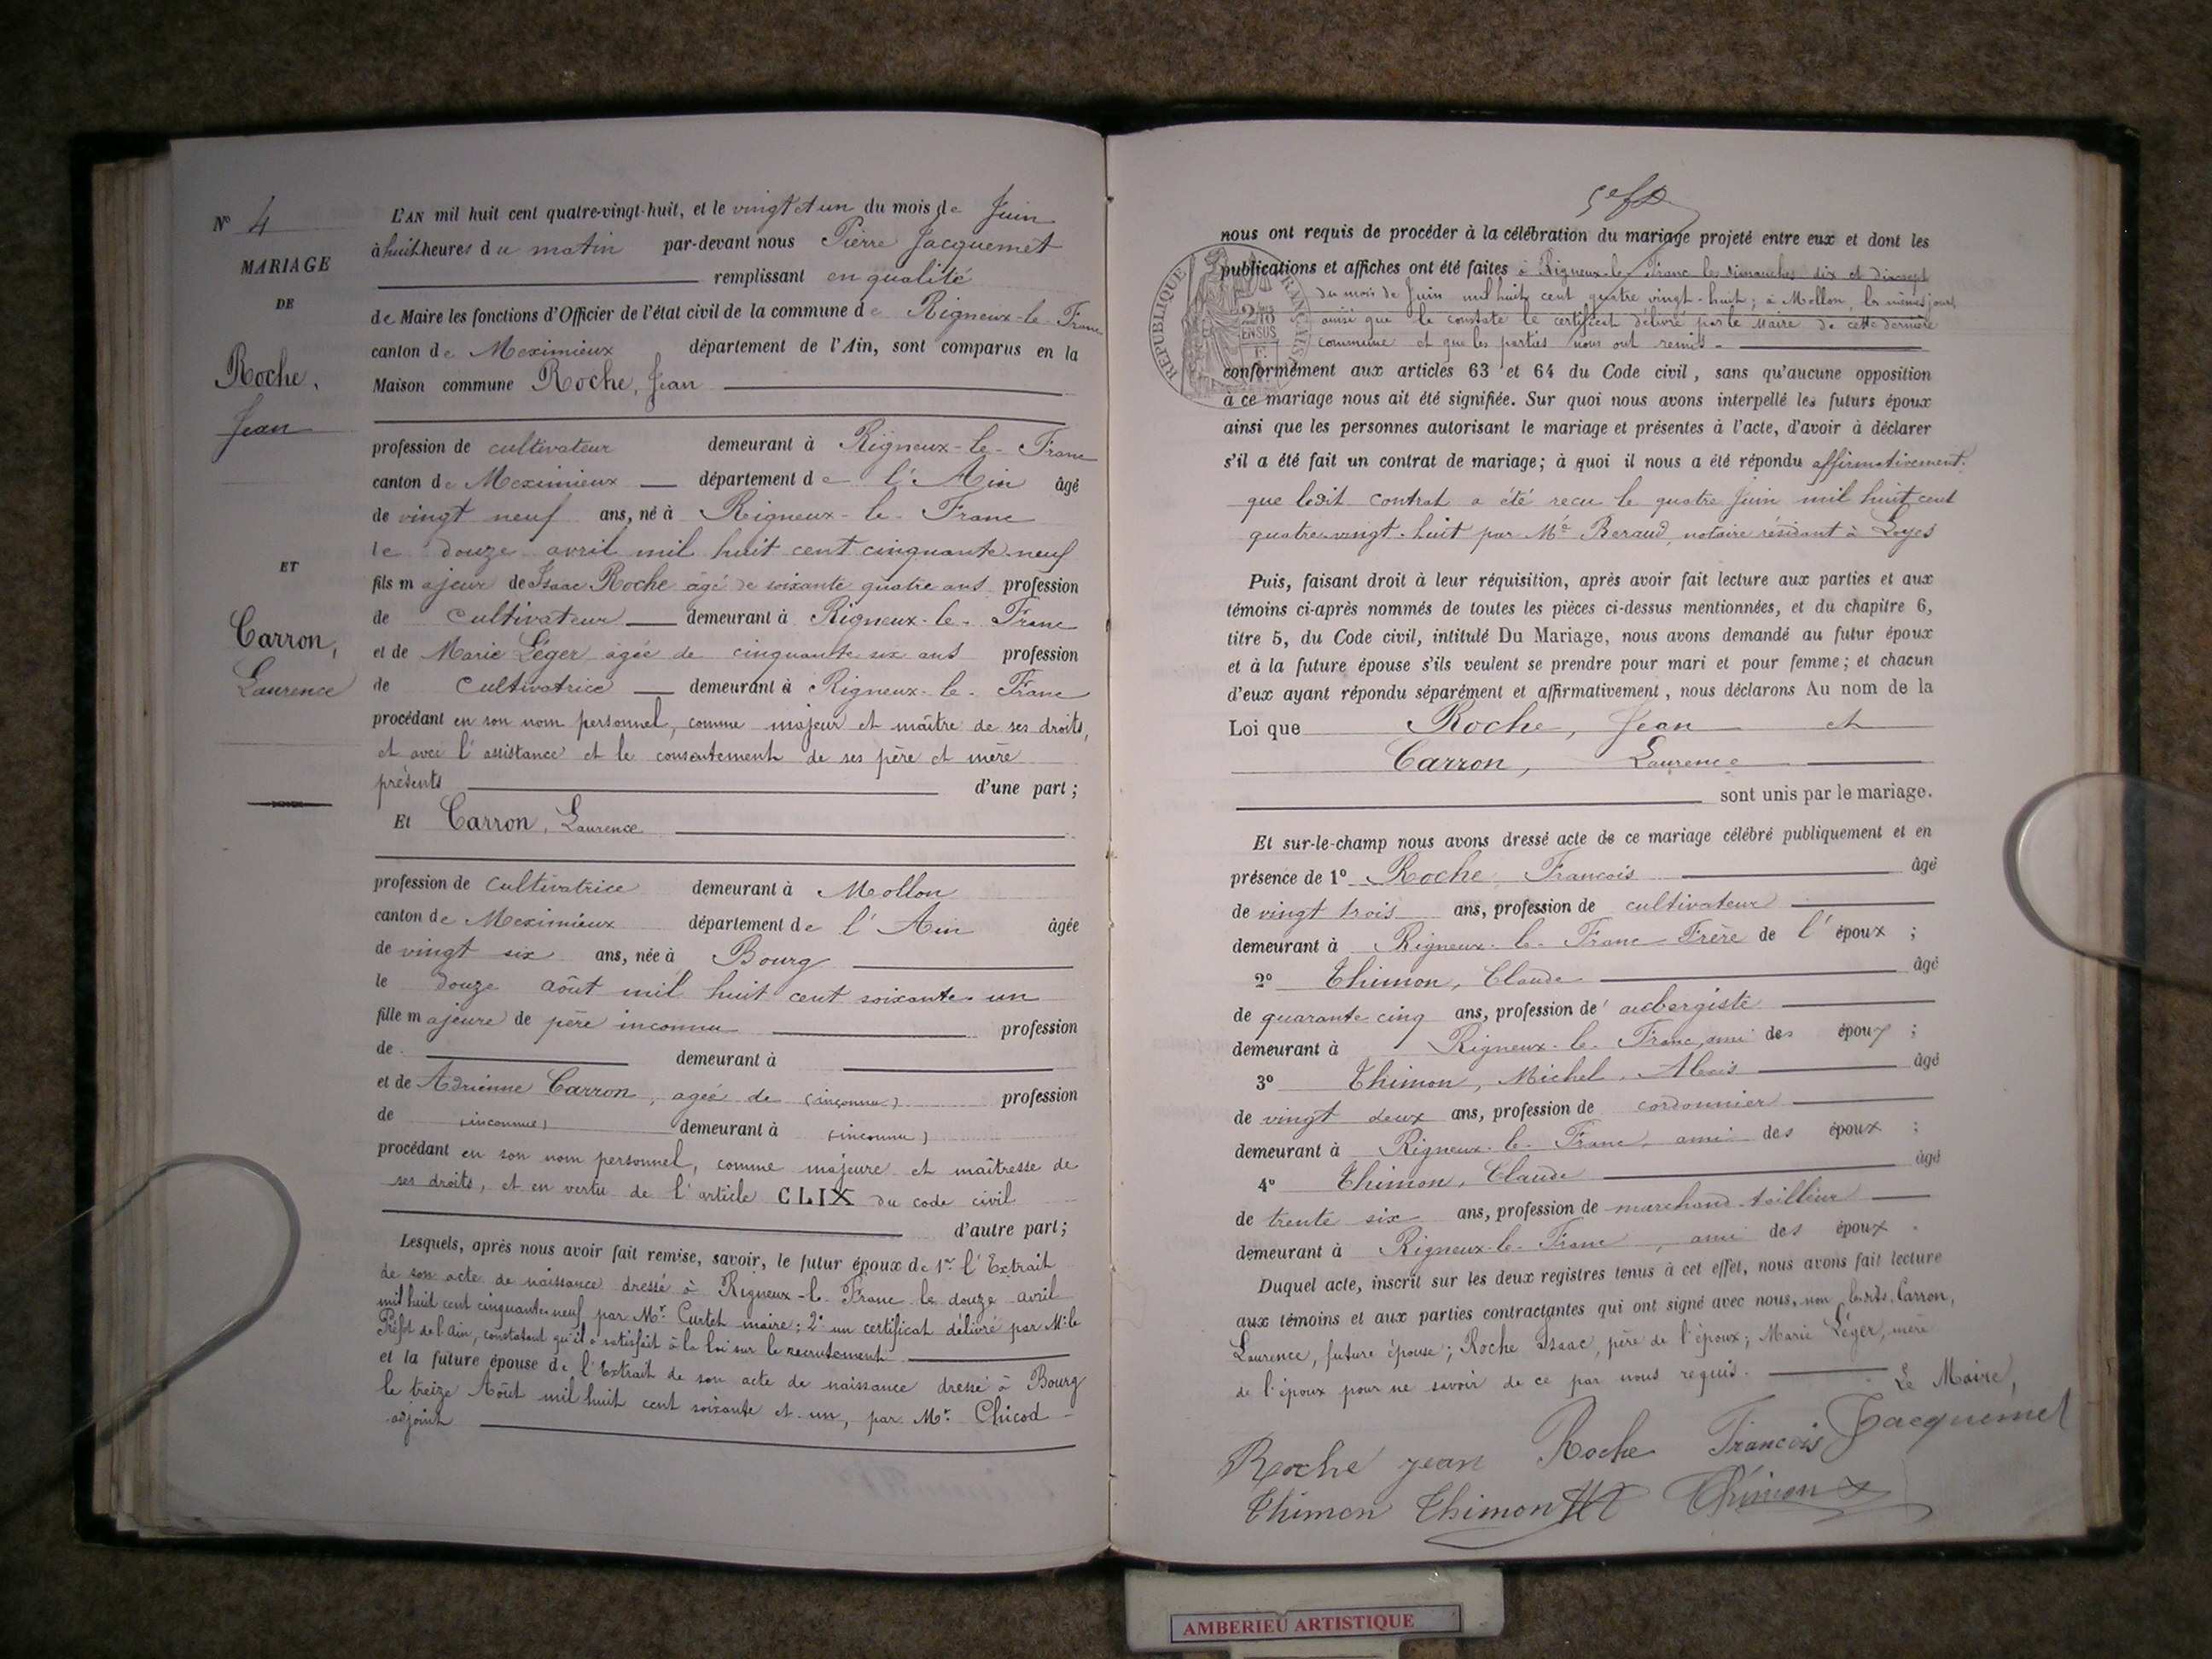 N° 4
MARIAGE
DE
Roche,
Jean
ET
Carron,
Laurence
L'AN mil huit cent quatre-vingt-huit, et le vingt et un du mois de Juin
à huit heures du matin par-devant nous Pierre Jacquemet
remplissant en qualité
de Maire les fonctions d'Officier de l'état civil de la commune de Rigneux-le-Franc
canton de Meximieux département de l'Ain, sont comparus en la
Maison commune Roche, Jean
profession de cultivateur demeurant à Rigneux-le-Franc
canton de Meximieux département de l'Ain âgé
de vingt neuf ans, né à Rigneux-le-Franc
le douze avril mil huit cent cinquante-neuf
fils majeur de Isaac Roche âgé de soixante quatre ans profession
de cultivateur demeurant à Rigneux-le-Franc
et de Marie Léger agée de cinquante six ans profession
de cultivatrice demeurant à Rigneux-le-Franc
procédant en son nom personnel, comme majeur et maître de ses droits,
et avec l'assistance et le consentement de ses père et mère
présents d'une part;
Et Carron, Laurence
profession de cultivatrice demeurant à Mollon
canton de Meximieux département de l'Ain âgée
de vingt six ans, née à Bourg
le douze août mil huit cent soixante-un
fille majeure de père inconnu profession
de demeurant à
et de Adrienne Carron, agée de (inconnu) profession
de (inconnue) demeurant à (inconnu)
procédant en son nom personnel, comme majeure et maîtresse de
ses droits, et en vertu de l'article CLIX du code civil
d'autre part;
Lesquels, après nous avoir fait remise, savoir, le futur époux de 1° l'Extrait
de son acte de naissance dressé à Rigneux-le-Franc le douze avril
mil huit cent cinquante-neuf par Mr. Curtet maire; 2° un certificat délivré par Mr le
Préfet de l'Ain, constatant qu'il a satisfait à la loi sur le recrutement
et la future épouse de l'Extrait de son acte de naissance dressé à Bourg
le treize Août mil huit cent soixante et un, par Mr. Chicod
adjoint
nous ont requis de procéder à la célébration du mariage projeté entre eux et dont les
publications et affiches ont été faites à Rigneux-le-Franc les dimanches dix et dixsept
du mois de Juin mil huit cent quatre vingt-huit; à Mollon, les mêmes jours
ainsi que le constate le certificat délivré par le Maire de cette dernière
commune et que les parties nous ont remis.
REPUBLIQUE FRANÇAISE
conformément aux articles 63 et 64 du Code civil, sans qu'aucune opposition
à ce mariage nous ait été signifiée. Sur quoi nous avons interpellé les futurs époux
ainsi que les personnes autorisant le mariage et présentes à l'acte, d'avoir à déclarer
s'il a été fait un contrat de mariage; à quoi il nous a été répondu affirmativement.
que ledit contrat a été recu le quatre Juin mil huit cent
quatre-vingt-huit par Me Beraud, notaire résidant à Loyes
Puis, faisant droit à leur réquisition, après avoir fait lecture aux parties et aux
témoins ci-après nommés de toutes les pièces ci-dessus mentionnées, et du chapitre 6,
titre 5, du Code civil, intitulé Du Mariage, nous avons demandé au futur époux
et à la future épouse s'ils veulent se prendre pour mari et pour femme; et chacun
d'eux ayant répondu séparément et affirmativement, nous déclarons Au nom de la
Loi que Roche, Jean et
Carron, Laurence
sont unis par le mariage.
Et sur-le-champ nous avons dressé acte de ce mariage célébré publiquement et en
présence de 1° Roche Francois âgé
de vingt trois ans, profession de cultivateur
demeurant à Rigneux-le-Franc Frère de l'époux;
2° Thimon, Claude âgé
de quarante cinq ans, profession de aubergiste
demeurant à Rigneux-le-Franc, ami des époux;
3° Thimon, Michel, Alexis âgé
de vingt deux ans, profession de cordonnier
demeurant à Rigneux-le-Franc, ami des époux;
4° Thimon, Claude âgé
de trente six ans, profession de marchand-tailleur
demeurant à Rigneux-le-Franc, ami des époux.
Duquel acte, inscrit sur les deux registres tenus à cet effet, nous avons fait lecture
aux témoins et aux parties contractantes qui ont signé avec nous, non lesdits Carron,
Laurence, future épouse; Roche Isaac, père de l'époux; Marie Léger, mère
de l'époux pour ne savoir de ce par nous requis. Le Maire,
Roche jean Roche Francois Jacquemet
Thimon Thimon Thimon
AMBERIEU ARTISTIQUE